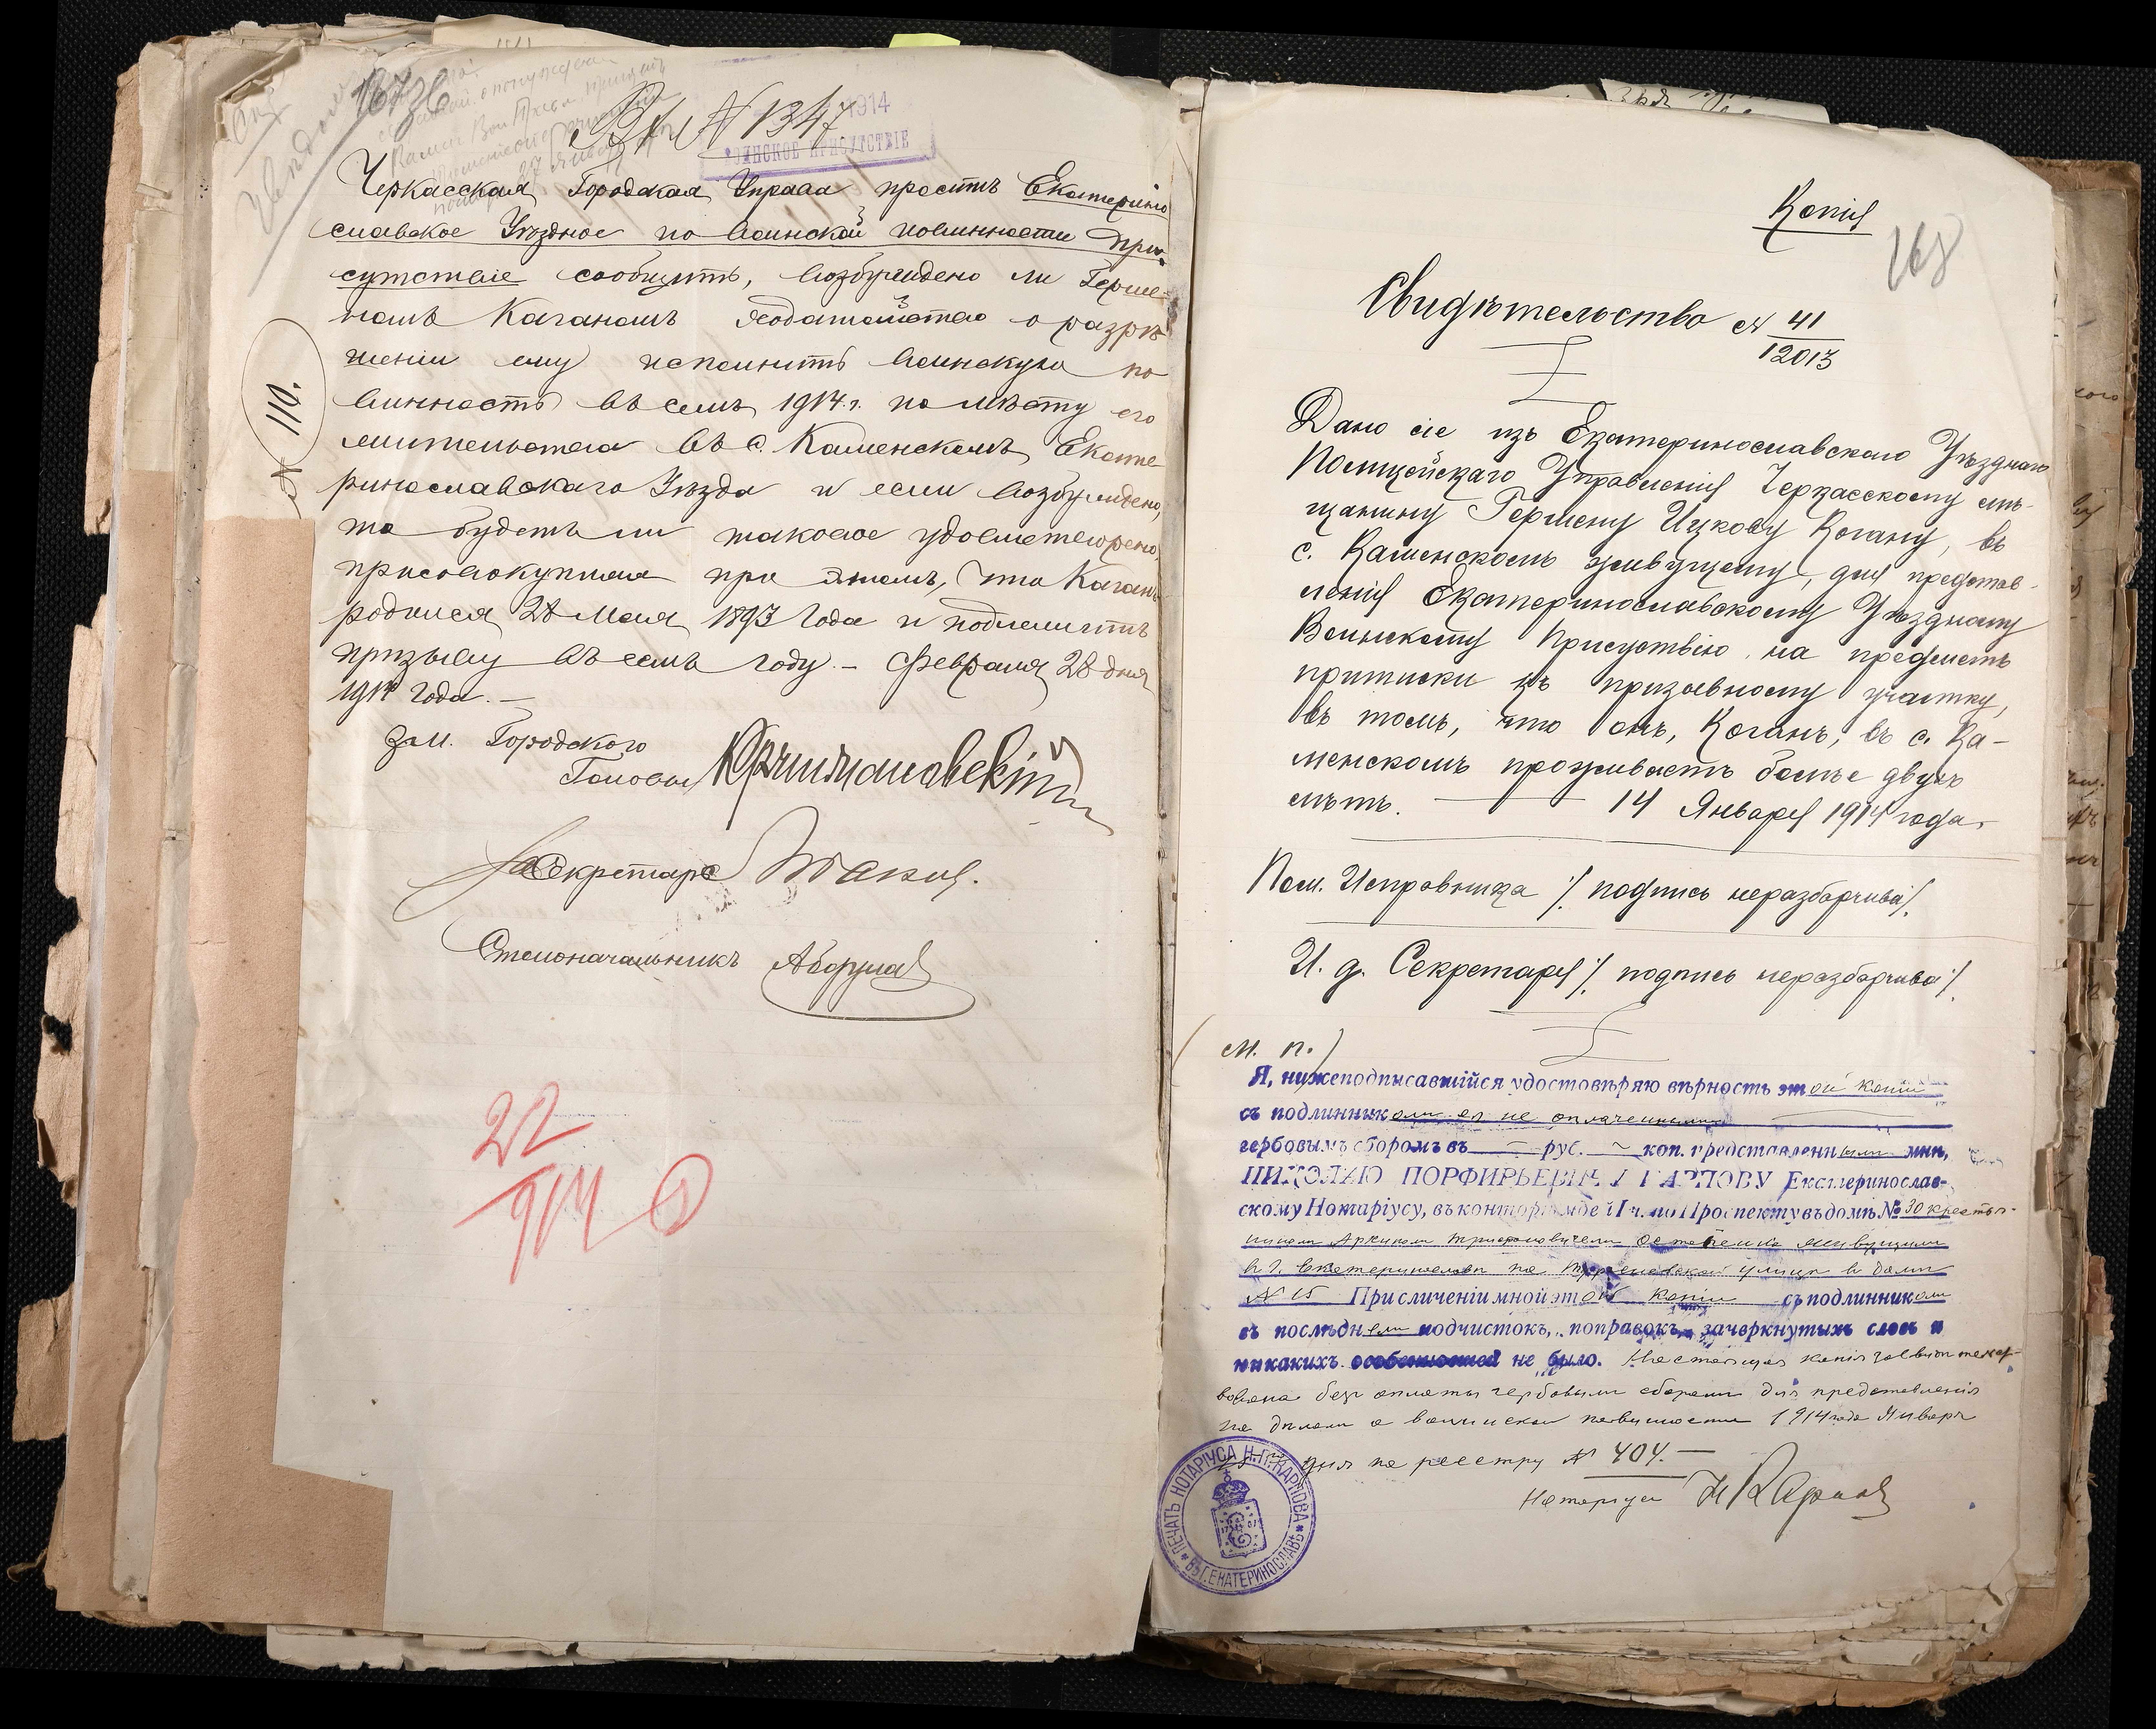 167 об
Вх № 1347
1914
ВОИНСКОЕ ПРИСУТСТВІЕ
Черкасская Городская Управа проситъ Екатерино
славское Уѣздное по воинской повинности При-
сутствіе сообщить, возбуждено ли Герше-
номъ Каганомъ ходатайство о разрѣ
шеніи ему исполнить воинскую по
винность въ семъ 1914 г. по мѣсту его
жительства въ с. Каменскомъ, Екате
ринославскаго Уѣзда и если возбуждено,
то будетъ ли таковое удовлетворено,
присовокупляя при этомъ, что Каганъ
родился 28 Мая 1893 года и подлежитъ
призыву въ семъ году. – Февраля 28 дня
1914 года. –
№ 110.
Зам. Городского
Головы
Секретаря
Столоначальникъ
22
914
Копія
168
Свидѣтельство № 41
12013
Дано сіе изъ Екатеринославскаго Уѣзднаго
Полицейскаго Управленія Черкасскому мѣ-
щанину Гершену Ицкову Когану, въ
с. Каменскомъ живущему, для представ-
ленія Екатеринославскому Уѣздному
Воинскому Присутствію на предметъ
приписки къ призывному участку,
въ томъ, что онъ, Коганъ, въ с. Ка-
менскомъ проживаетъ болѣе двухъ
лѣтъ. 14 Января 1914 года.
Пом. Исправника /подпись неразборчива/.
И. д. Секретаря /подпись неразборчива/.
(М. П.)
Я, нижеподписавшійся удостовѣряю вѣрность этой копіи
съ подлинникомъ ея не оплаченнымъ
гербовымъ сборомъ въ — руб. ~ коп. представленнымъ мнѣ,
НИКОЛАЮ ПОРФИРЬЕВИЧУ КАРПОВУ Екатеринослав-
скому Нотаріусу, въ конторѣ моей I ч. по Проспекту въ домѣ № 30 крестья-
ниномъ живущимъ
в г. Екатеринославѣ на улицѣ в домѣ
№ 15 При сличеніи мной этой копіи съ подлинникомъ
въ послѣднемъ подчистокъ, поправокъ, зачеркнутыхъ словъ и
никакихъ особенностей не было. Настоящая копія засвидѣтельст-
вована безъ оплаты гербовымъ сборомъ для представленія
по дѣламъ о воинской повинности 1914 года Января
дня по реестру № 404. —
Нотаріусъ Н Карповъ
ПЕЧАТЬ НОТАРІУСА Н.П. КАРПОВА
ВЪ Г. ЕКАТЕРИНОСЛАВѢ